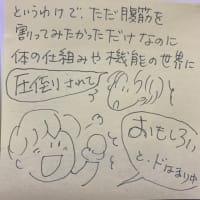 というわけで、ただ腹筋を
割ってみたかっただけなのに
体の仕組みや機能の世界に
圧倒されて
おもしろい
と、ドはまり中